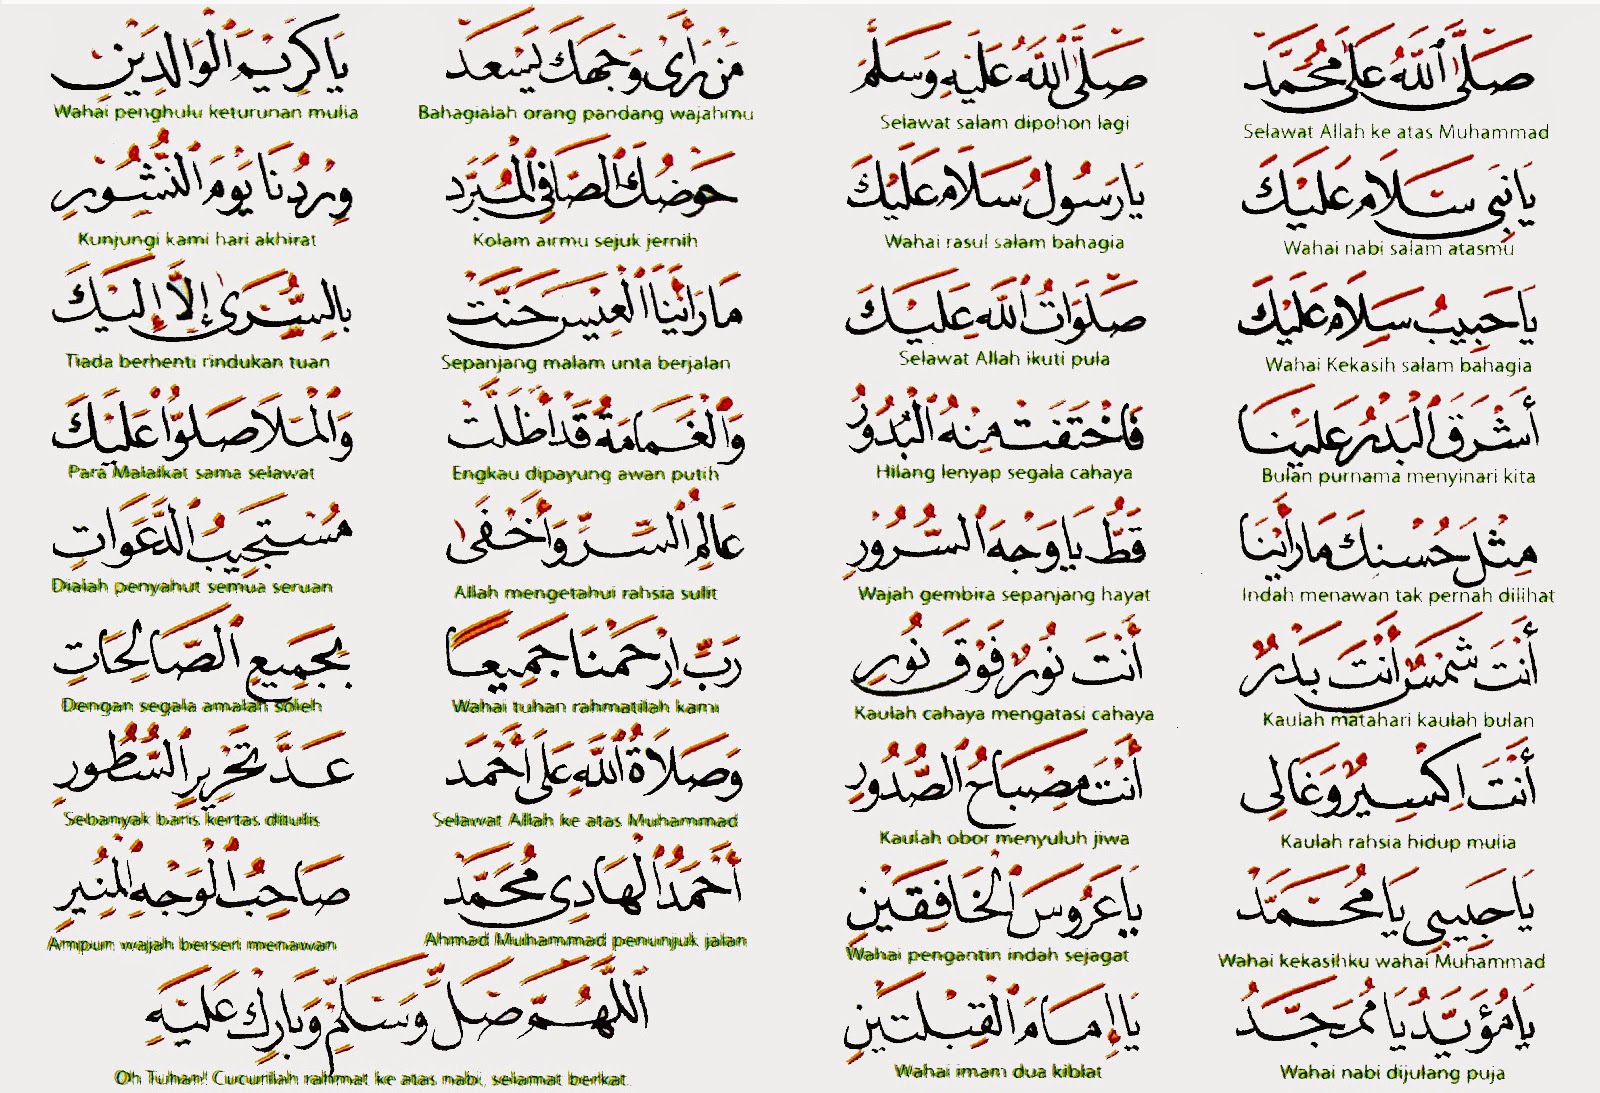 صَلَّى ٱللَّهُ عَلَى مُحَمَّدْ
Selawat Allah ke atas Muhammad
صَلَّى ٱللَّهُ عَلَيْهِ وَسَلَّمْ
Selawat salam dipohon lagi
يَا نَبِي سَلَامْ عَلَيْكَ
Wahai nabi salam atasmu
يَا رَسُولْ سَلَامْ عَلَيْكَ
Wahai rasul salam bahagia
يَا حَبِيبُ سَلَامْ عَلَيْكَ
Wahai Kekasih salam bahagia
صَلَوَاتُ ٱللَّه عَلَيْكَ
Selawat Allah ikuti pula
أَشْرَقَ ٱلْبَدْرُ عَلَيْنَا
Bulan purnama menyinari kita
فَاخْتَفَتْ مِنْهُ ٱلْبُدُورُ
Hilang lenyap segala cahaya
مِثْلَ حُسْنِكَ مَا رَأَيْنَا
Indah menawan tak pernah dilihat
قَطُّ يَا وَجْهَ ٱلسُّرُورِ
Wajah gembira sepanjang hayat
أَنْتَ شَمْسٌ أَنْتَ بَدْرٌ
Kaulah matahari kaulah bulan
أَنْتَ نُورٌ فَوْقَ نُورِ
Kaulah cahaya mengatasi cahaya
أَنْتَ إِكْسِيرٌ وَغَالِى
Kaulah rahsia hidup mulia
أَنْتَ مِصْبَاحُ ٱلصُّدُورِ
Kaulah obor menyuluh jiwa
يَا حَبِيبِي يَا مُحَمَّدْ
Wahai kekasihku wahai Muhammad
يَا عَرُوسَ ٱلْخَافِقَيْنِ
Wahai pengantin indah sejagat
يَا مُؤَيَّدْ يَا مُمَجَّدْ
Wahai nabi dijulang puja
يَا إِمَامَ ٱلْقِبْلَتَيْنِ
Wahai imam dua kiblat
مَنْ رَأَى وَجْهَكَ يَسْعَدْ
Bahagialah orang pandang wajahmu
يَا كَرِيْمَ ٱلْوَالِدَيْنِ
Wahai penghulu keturunan mulia
حَوْضُكَ ٱلصَّافِى ٱلْمُبَرَّدْ
Kolam airmu sejuk jernih
وِرْدُنَا يَوْمَ ٱلنُّشُورِ
Kunjungi kami hari akhirat
مَا رَأَيْنَا ٱلْعِيسَ حَنَّتْ
Sepanjang malam unta berjalan
بِالسُّرَى إِلَّا إِلَيْكَ
Tiada berhenti rindukan tuan
وَٱلْغَمَامَةُ قَدْ أَظَلَّتْ
Engkau dipayung awan putih
وَٱلْمَلَا صَلُّوا عَلَيْكَ
Para Malaikat sama selawat
عَالِمُ ٱلسِّرِّ وَأَخْفَى
Allah mengetahui rahsia sulit
مُسْتَجِيبُ ٱلدَّعَوَاتِ
Dialah penyahut semua seruan
رَبِّ إِرْحَمْنَا جَمِيعًا
Wahai tuhan rahmatilah kami
بِجَمِيعِ ٱلصَّالِحَاتِ
Dengan segala amalan soleh
وَصَلَاةُ ٱللَّهِ عَلَى أَحْمَدْ
Selawat Allah ke atas Muhammad
عَدَّ تَحْرِيرِ ٱلسُّطُورِ
Sebanyak baris kertas ditulis
أَحْمَدُ ٱلْهَادِى مُحَمَّدْ
Ahmad Muhammad penunjuk jalan
صَاحِبُ ٱلْوَجْهِ ٱلْمُنِيرِ
Ampun wajah berseri menawan
ٱللَّهُمَّ صَلِّ وَسَلِّمْ وَبَارِكْ عَلَيْهِ
Oh Tuhan! Cucurilah rahmat ke atas nabi, selamat berkat.